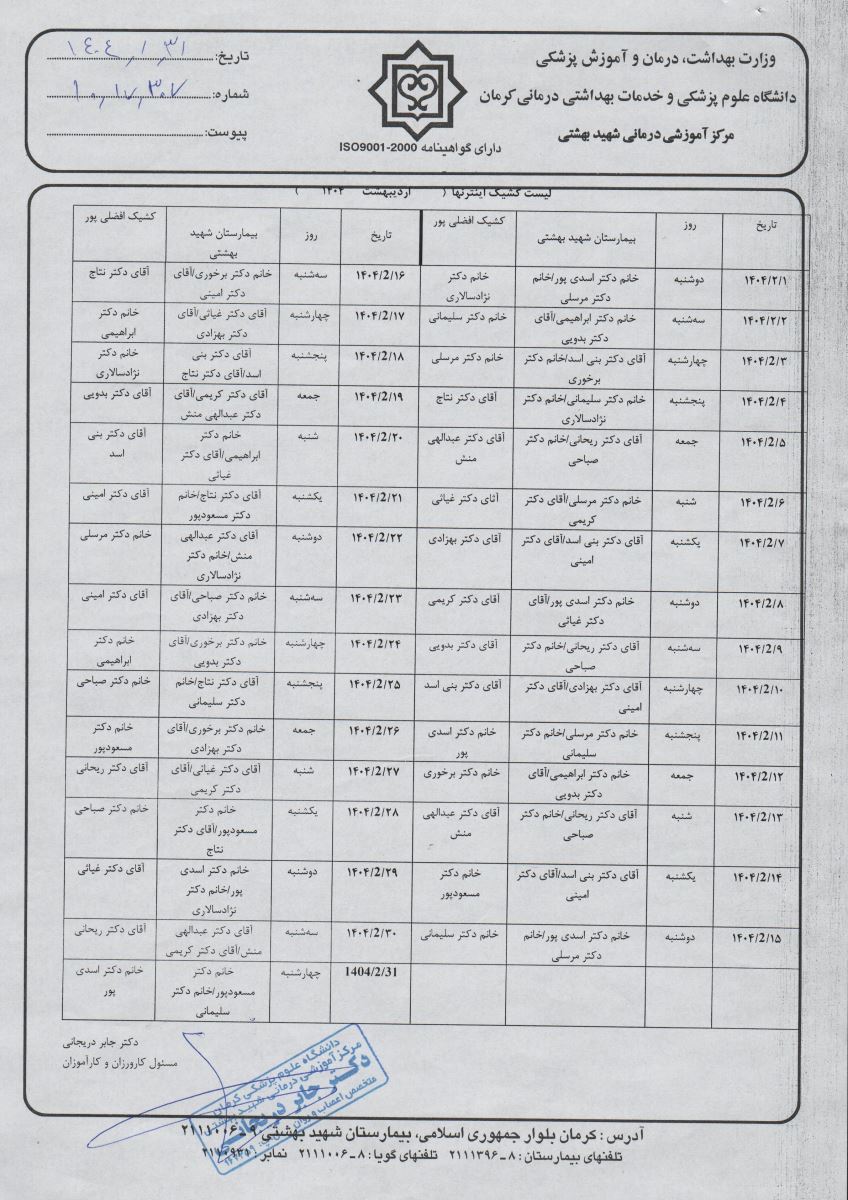 وزارت بهداشت، درمان و آموزش پزشکی
دانشگاه علوم پزشکی و خدمات بهداشتی درمانی کرمان
مرکز آموزشی درمانی شهید بهشتی
دارای گواهینامه ISO9001-2000
تاریخ: ۱۴۰۴٫۱٫۳۱
شماره: ۱۰٫۱۷٫۳۰۷
پیوست:
لیست کشیک اینترنها ( اردیبهشت ۱۴۰۴ )
تاریخ روز بیمارستان شهید بهشتی کشیک افضلی پور تاریخ روز بیمارستان شهید
بهشتی کشیک افضلی پور
۱۴۰۴/۲/۱ دوشنبه خانم دکتر اسدی پور/خانم خانم دکتر ۱۴۰۴/2/۱۶ سه‌شنبه خانم دکتر برخوری/آقای آقای دکتر نتاج
دکتر مرسلی نژادسالاری دکتر امینی
۱۴۰۴/۲/۲ سه‌شنبه خانم دکتر ابراهیمی/آقای خانم دکتر سلیمانی ۱۴۰۴/2/۱۷ چهارشنبه آقای دکتر غیاثی/آقای خانم دکتر
دکتر بدویی دکتر بهزادی ابراهیمی
۱۴۰۴/2/۳ چهارشنبه آقای دکتر بنی اسد/خانم دکتر خانم دکتر مرسلی ۱۴۰۴/2/۱۸ پنجشنبه آقای دکتر بنی خانم دکتر
برخوری اسد/آقای دکتر نتاج نژادسالاری
۱۴۰۴/2/۴ پنجشنبه خانم دکتر سلیمانی/خانم دکتر آقای دکتر نتاج ۱۴۰۴/2/۱۹ جمعه آقای دکتر کریمی/آقای آقای دکتر بدویی
نژادسالاری دکتر عبدالهی منش
۱۴۰۴/2/۵ جمعه آقای دکتر ریحانی/خانم دکتر آقای دکتر عبدالهی ۱۴۰۴/2/۲۰ شنبه خانم دکتر آقای دکتر بنی
صباحی منش ابراهیمی/آقای دکتر اسد
غیاثی
۱۴۰۴/2/۶ شنبه خانم دکتر مرسلی/آقای دکتر آثای دکتر غیاثی ۱۴۰۴/2/۲۱ یکشنبه آقای دکتر نتاج/خانم آقای دکتر امینی
کریمی دکتر مسعودپور
۱۴۰۴/2/۷ یکشنبه آقای دکتر بنی اسد/آقای دکتر آقای دکتر بهزادی ۱۴۰۴/2/۲۲ دوشنبه آقای دکتر عبدالهی خانم دکتر مرسلی
امینی منش/خانم دکتر
نژادسالاری
۱۴۰۴/2/۸ دوشنبه خانم دکتر اسدی پور/آقای آقای دکتر کریمی ۱۴۰۴/2/۲۳ سه‌شنبه خانم دکتر صباحی/آقای آقای دکتر امینی
دکتر غیاثی دکتر بهزادی
۱۴۰۴/2/۹ سه‌شنبه آقای دکتر ریحانی/خانم دکتر آقای دکتر بدویی ۱۴۰۴/2/۲۴ چهارشنبه خانم دکتر برخوری/آقای خانم دکتر
صباحی دکتر بدویی ابراهیمی
۱۴۰۴/2/۱۰ چهارشنبه آقای دکتر بهزادی/آقای دکتر آقای دکتر بنی اسد ۱۴۰۴/2/۲۵ پنجشنبه آقای دکتر نتاج/خانم خانم دکتر صباحی
امینی دکتر سلیمانی
۱۴۰۴/2/۱۱ پنجشنبه خانم دکتر مرسلی/خانم دکتر خانم دکتر اسدی ۱۴۰۴/2/۲۶ جمعه خانم دکتر برخوری/آقای خانم دکتر
سلیمانی پور دکتر بهزادی مسعودپور
۱۴۰۴/2/۱۲ جمعه خانم دکتر ابراهیمی/آقای خانم دکتر برخوری ۱۴۰۴/2/۲۷ شنبه آقای دکتر غیاثی/آقای آقای دکتر ریحانی
دکتر بدویی دکتر کریمی
۱۴۰۴/2/۱۳ شنبه آقای دکتر ریحانی/خانم دکتر آقای دکتر عبدالهی ۱۴۰۴/2/۲۸ یکشنبه خانم دکتر خانم دکتر صباحی
صباحی منش مسعودپور/آقای دکتر
نتاج
۱۴۰۴/2/۱۴ یکشنبه آقای دکتر بنی اسد/آقای دکتر خانم دکتر ۱۴۰۴/2/۲۹ دوشنبه خانم دکتر اسدی آقای دکتر غیاثی
امینی مسعودپور پور/خانم دکتر
نژادسالاری
۱۴۰۴/2/۱۵ دوشنبه خانم دکتر اسدی پور/خانم خانم دکتر سلیمانی ۱۴۰۴/2/۳۰ سه‌شنبه آقای دکتر عبدالهی آقای دکتر ریحانی
دکتر مرسلی منش/آقای دکتر کریمی
1404/2/31 چهارشنبه خانم دکتر خانم دکتر اسدی
مسعودپور/خانم دکتر پور
سلیمانی
دکتر جابر دریجانی
مسئول کارورزان و کارآموزان
دانشگاه علوم پزشکی کرمان
مرکز آموزشی درمانی شهید بهشتی
دکتر جابر دریجانی
متخصص اعصاب و روان
آدرس : کرمان بلوار جمهوری اسلامی، بیمارستان شهید بهشتی ۹-۲۱۱۱۰۰۶
تلفنهای بیمارستان : ۸-۲۱۱۱۳۹۶ تلفنهای گویا : ۸-۲۱۱۱۰۰۶ نمابر :